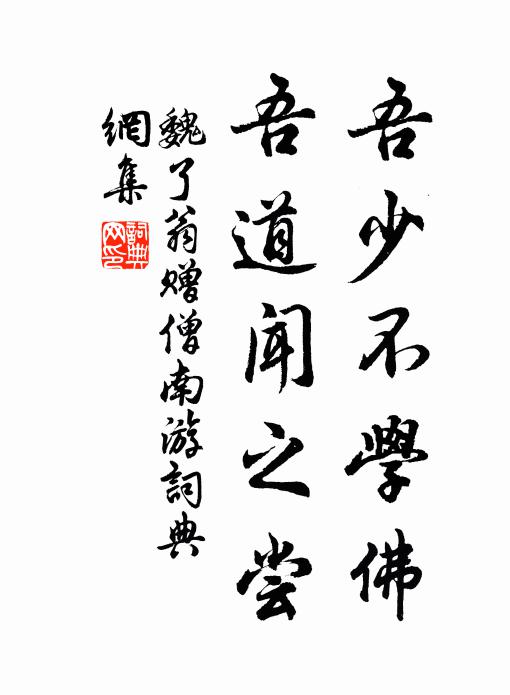 吾少不學佛
吾道闻之尝
魏了翁赠僧南游詞典
網集
詞典
网印